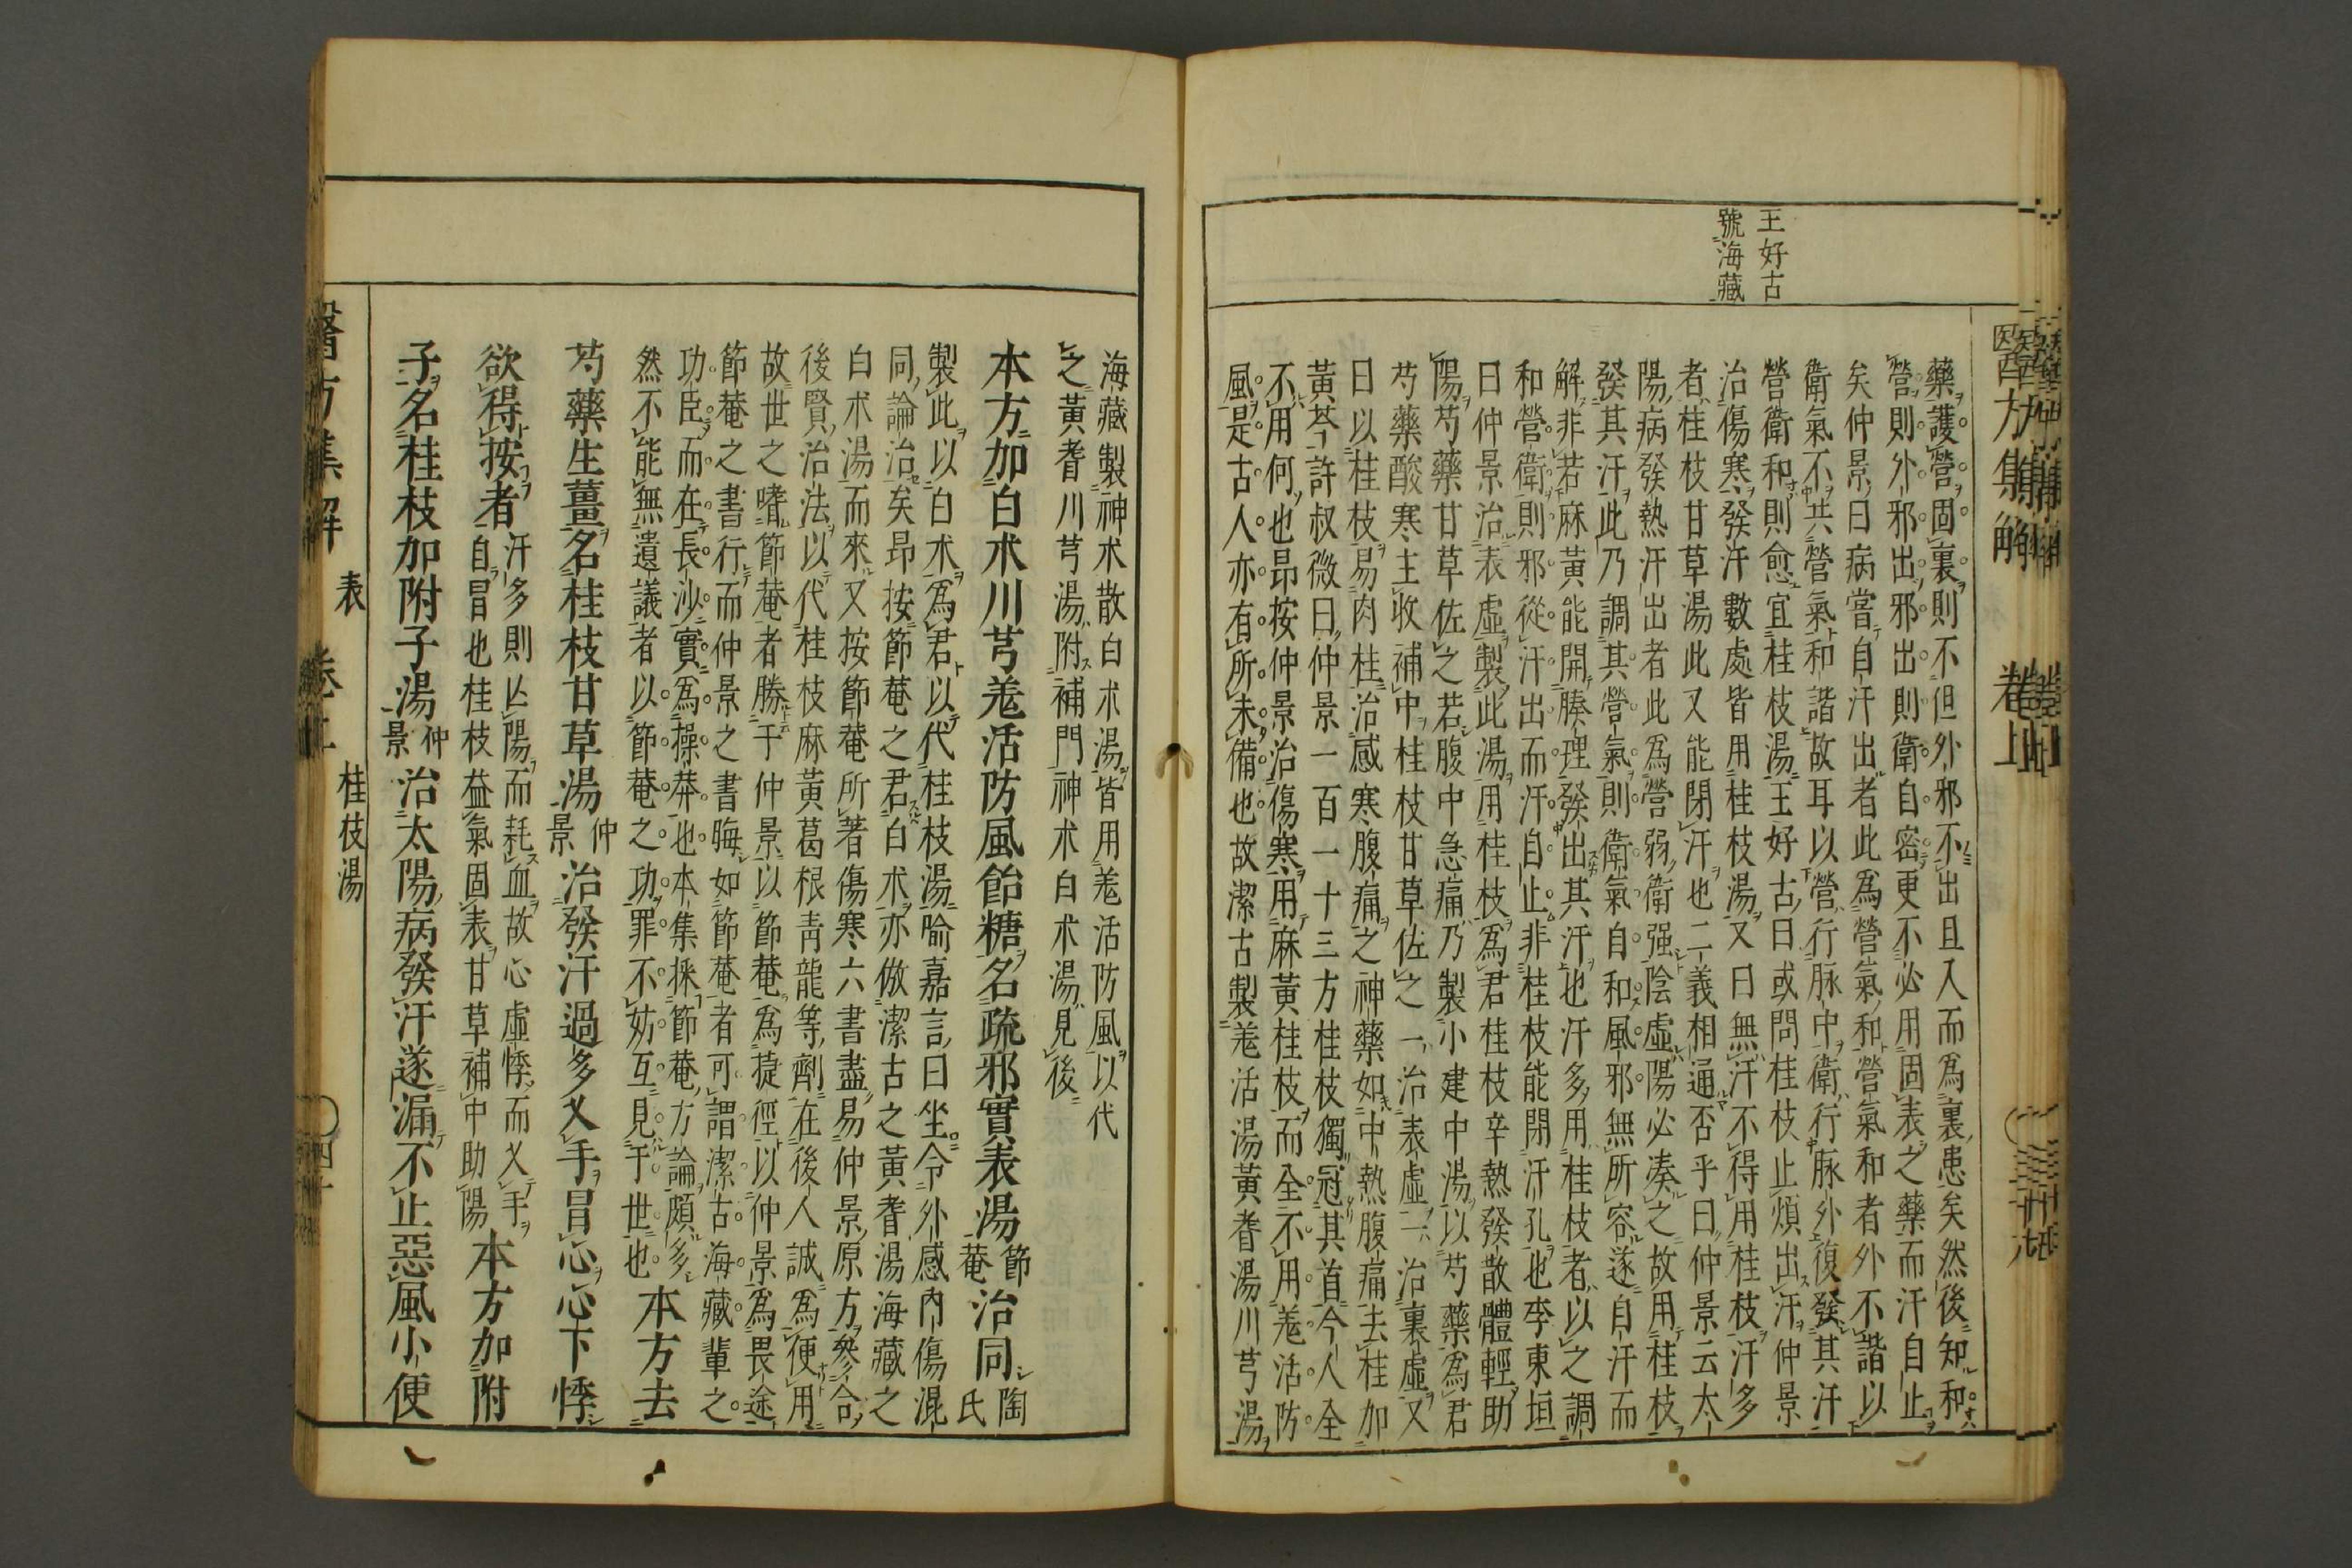 王好古
號海藏
藥護營固裏則不但外邪不出且入而爲裏患矣然後知和
營則外邪出邪出則衛自密更不必用固表之藥而汗自止
矣仲景曰病嘗自汗出者此爲營氣和營氣和者外不諧以
衛氣不共營氣和諧故耳以營行脉中衛行脉外復發其汗
營衛和則愈宜桂枝湯王好古曰或問桂枝止煩出汗仲景
治傷寒發汗數處皆用桂枝湯又曰無汗不得用桂枝汗多
者桂枝甘草湯此又能閉汗也二義相通否乎曰仲景云太
陽病發熱汗出者此爲營弱衛强陰虛陽必湊之故用桂枝
發其汗此乃調其營氣則衛氣自和風邪無所容遂自汗而
解非若麻黃能開腠理發出其汗也汗多用桂枝者以之調
和營衛則邪從汗出而汗自止非桂枝能閉汗孔也李東垣
曰仲景治表虛製此湯用桂枝爲君桂枝辛熱發散體輕助
陽芍藥甘草佐之若腹中急痛乃製小建中湯以芍藥爲君
芍藥酸寒主收補中桂枝甘草佐之一治表虛一治裏虛又
曰以桂枝易肉桂治感寒腹痛之神藥如中熱腹痛去桂加
黃芩許叔微曰仲景一百一十三方桂枝獨冠其首今人全
不用何也昂按仲景治傷寒用麻黃桂枝而全不用羗活防
風是古人亦有所未備也故潔古製羗活湯黃耆湯川芎湯
醫方集解 卷上
海藏製神朮散白朮湯皆用羗活防風以代
之黃耆川芎湯附補門神朮白朮湯見後
本方加白朮川芎羗活防風飴糖名疏邪實表湯節菴治同陶氏
製此以白朮爲君以代桂枝湯喻嘉言曰坐令外感內傷混
同論治矣昂按節菴之君白朮亦倣潔古之黃耆湯海藏之
白朮湯而來又按節菴所著傷寒六書盡易仲景原方參合
後賢治法以代桂枝麻黃葛根青龍等劑在後人誠爲便用
故世之嗜節菴者勝于仲景以節菴爲㨗徑以仲景爲畏途
節菴之書行而仲景之書晦如節菴者可謂潔古海藏輩之
功臣而在長沙實爲操莽也本集採節菴方論頗多
然不能無遺議者以節菴之功罪不妨互見于世也本方去
芍藥生薑名桂枝甘草湯仲景治發汗過多乂手冒心心下悸
欲得按者汗多則亾陽而耗血故心虛悸而乂手自冒也桂枝益氣固表甘草補中助陽本方加附
子名桂枝加附子湯仲景治太陽病發汗遂漏不止惡風小便
醫方集解 表 卷上 桂枝湯